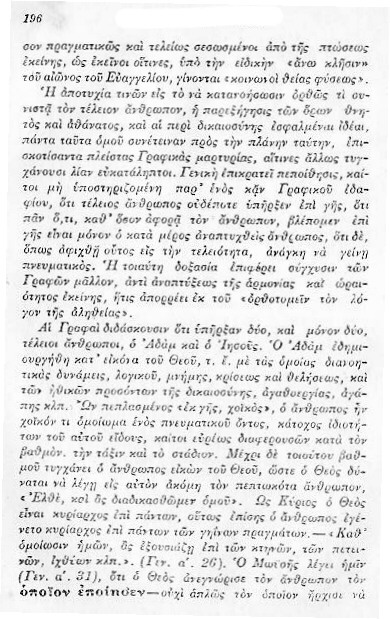 196
σον πραγματικῶς καὶ τελείως σεσωσμένοι ἀπὸ τῆς πτώσεως
ἐκείνης, ὡς ἐκεῖνοι οἵτινες, ὑπὸ τὴν εἰδικὴν «ἄνω κλῆσιν»
τοῦ αἰῶνος τοῦ Εὐαγγελίου, γίνονται «κοινωνοὶ θείας φύσεως».
Ἡ ἀποτυχία τινῶν εἰς τὸ νὰ κατανοήσωσιν ὀρθῶς τί συ-
νιστᾷ τὸν τέλειον ἄνθρωπον, ἡ παρεξήγησις τῶν ὅρων θνη-
τὸς καὶ ἀθάνατος, καὶ αἱ περὶ δικαιοσύνης ἐσφαλμέναι ἰδέαι,
πάντα ταῦτα ὁμοῦ συνέτειναν πρὸς τὴν πλάνην ταύτην, ἐπι-
σκοτίσαντα πλείστας Γραφικὰς μαρτυρίας, αἵτινες ἄλλως τυγ-
χάνουσι λίαν εὐκατάληπτοι. Γενικὴ ἐπικρατεῖ πεποίθησις, καί-
τοι μὴ ὑποστηριζομένη παρ' ἑνὸς κἂν Γραφικοῦ ἐδα-
φίου, ὅτι τέλειος ἄνθρωπος οὐδέποτε ὑπῆρξεν ἐπὶ γῆς, ὅτι
πᾶν ὅ,τι, καθ' ὅσον ἀφορᾷ τὸν ἄνθρωπον, βλέπομεν ἐπὶ
γῆς εἶναι μόνον ὁ κατὰ μέρος ἀναπτυχθεὶς ἄνθρωπος, ὅτι δέ,
ὅπως ἀφιχθῇ οὗτος εἰς τὴν τελειότητα, ἀνάγκη νὰ γείνῃ
πνευματικός. Ἡ τοιαύτη δοξασία ἐπιφέρει σύγχυσιν τῶν
Γραφῶν μᾶλλον, ἀντὶ ἀναπτύξεως τῆς ἁρμονίας καὶ ὡραι-
ότητος ἐκείνης, ἥτις ἀπορρέει ἐκ τοῦ «ὀρθοτομεῖν τὸν λό-
γον τῆς ἀληθείας».
Αἱ Γραφαὶ διδάσκουσιν ὅτι ὑπῆρξαν δύο, καὶ μόνον δύο,
τέλειοι ἄνθρωποι, ὁ Ἀδὰμ καὶ ὁ Ἰησοῦς. Ὁ Ἀδὰμ ἐδημι-
ουργήθη κατ' εἰκόνα τοῦ Θεοῦ, τ. ἔ. μὲ τὰς ὁμοίας διανοη-
τικὰς δυνάμεις, λογικοῦ, μνήμης, κρίσεως καὶ θελήσεως, καὶ
τῶν ἠθικῶν προσόντων τῆς δικαιοσύνης, ἀγαθοεργίας, ἀγά-
πης κλπ. Ὢν πεπλασμένος «ἐκ γῆς, χοϊκός», ὁ ἄνθρωπος ἦν
χοϊκόν τι ὁμοίωμα ἑνὸς πνευματικοῦ ὄντος, κάτοχος ἰδιοτή-
των τοῦ αὐτοῦ εἴδους, καίτοι εὐρέως διαφερουσῶν κατὰ τὸν
βαθμόν. τὴν τάξιν καὶ τὸ στάδιον. Μέχρι δὲ τοιούτου βαθ-
μοῦ τυγχάνει ὁ ἄνθρωπος εἰκὼν τοῦ Θεοῦ, ὥστε ὁ Θεὸς δύ-
ναται νὰ λέγῃ εἰς αὐτὸν ἀκόμη τὸν πεπτωκότα ἄνθρωπον,
«Ἐλθέ, καὶ ἂς διαδικασθῶμεν ὁμοῦ». Ὡς Κύριος ὁ Θεὸς
εἶναι κυρίαρχος ἐπὶ πάντων, οὕτως ἐπίσης ὁ ἄνθρωπος ἐγέ-
νετο κυρίαρχος ἐπὶ πάντων τῶν γηΐνων πραγμάτων.—«Καθ'
ὁμοίωσιν ἡμῶν, ἂς ἐξουσιάζῃ ἐπὶ τῶν κτηνῶν, τῶν πετει-
νῶν, ἰχθύων κλπ.». (Γεν. α'. 26). Ὁ Μωϋσῆς λέγει ἡμῖν
(Γεν. α'. 31), ὅτι ὁ Θεὸς ἀνεγνώρισε τὸν ἄνθρωπον τὸν
ὁποῖον ἐποίησεν—οὐχὶ ἁπλῶς τὸν ὁποῖον ἤρχισε νὰ